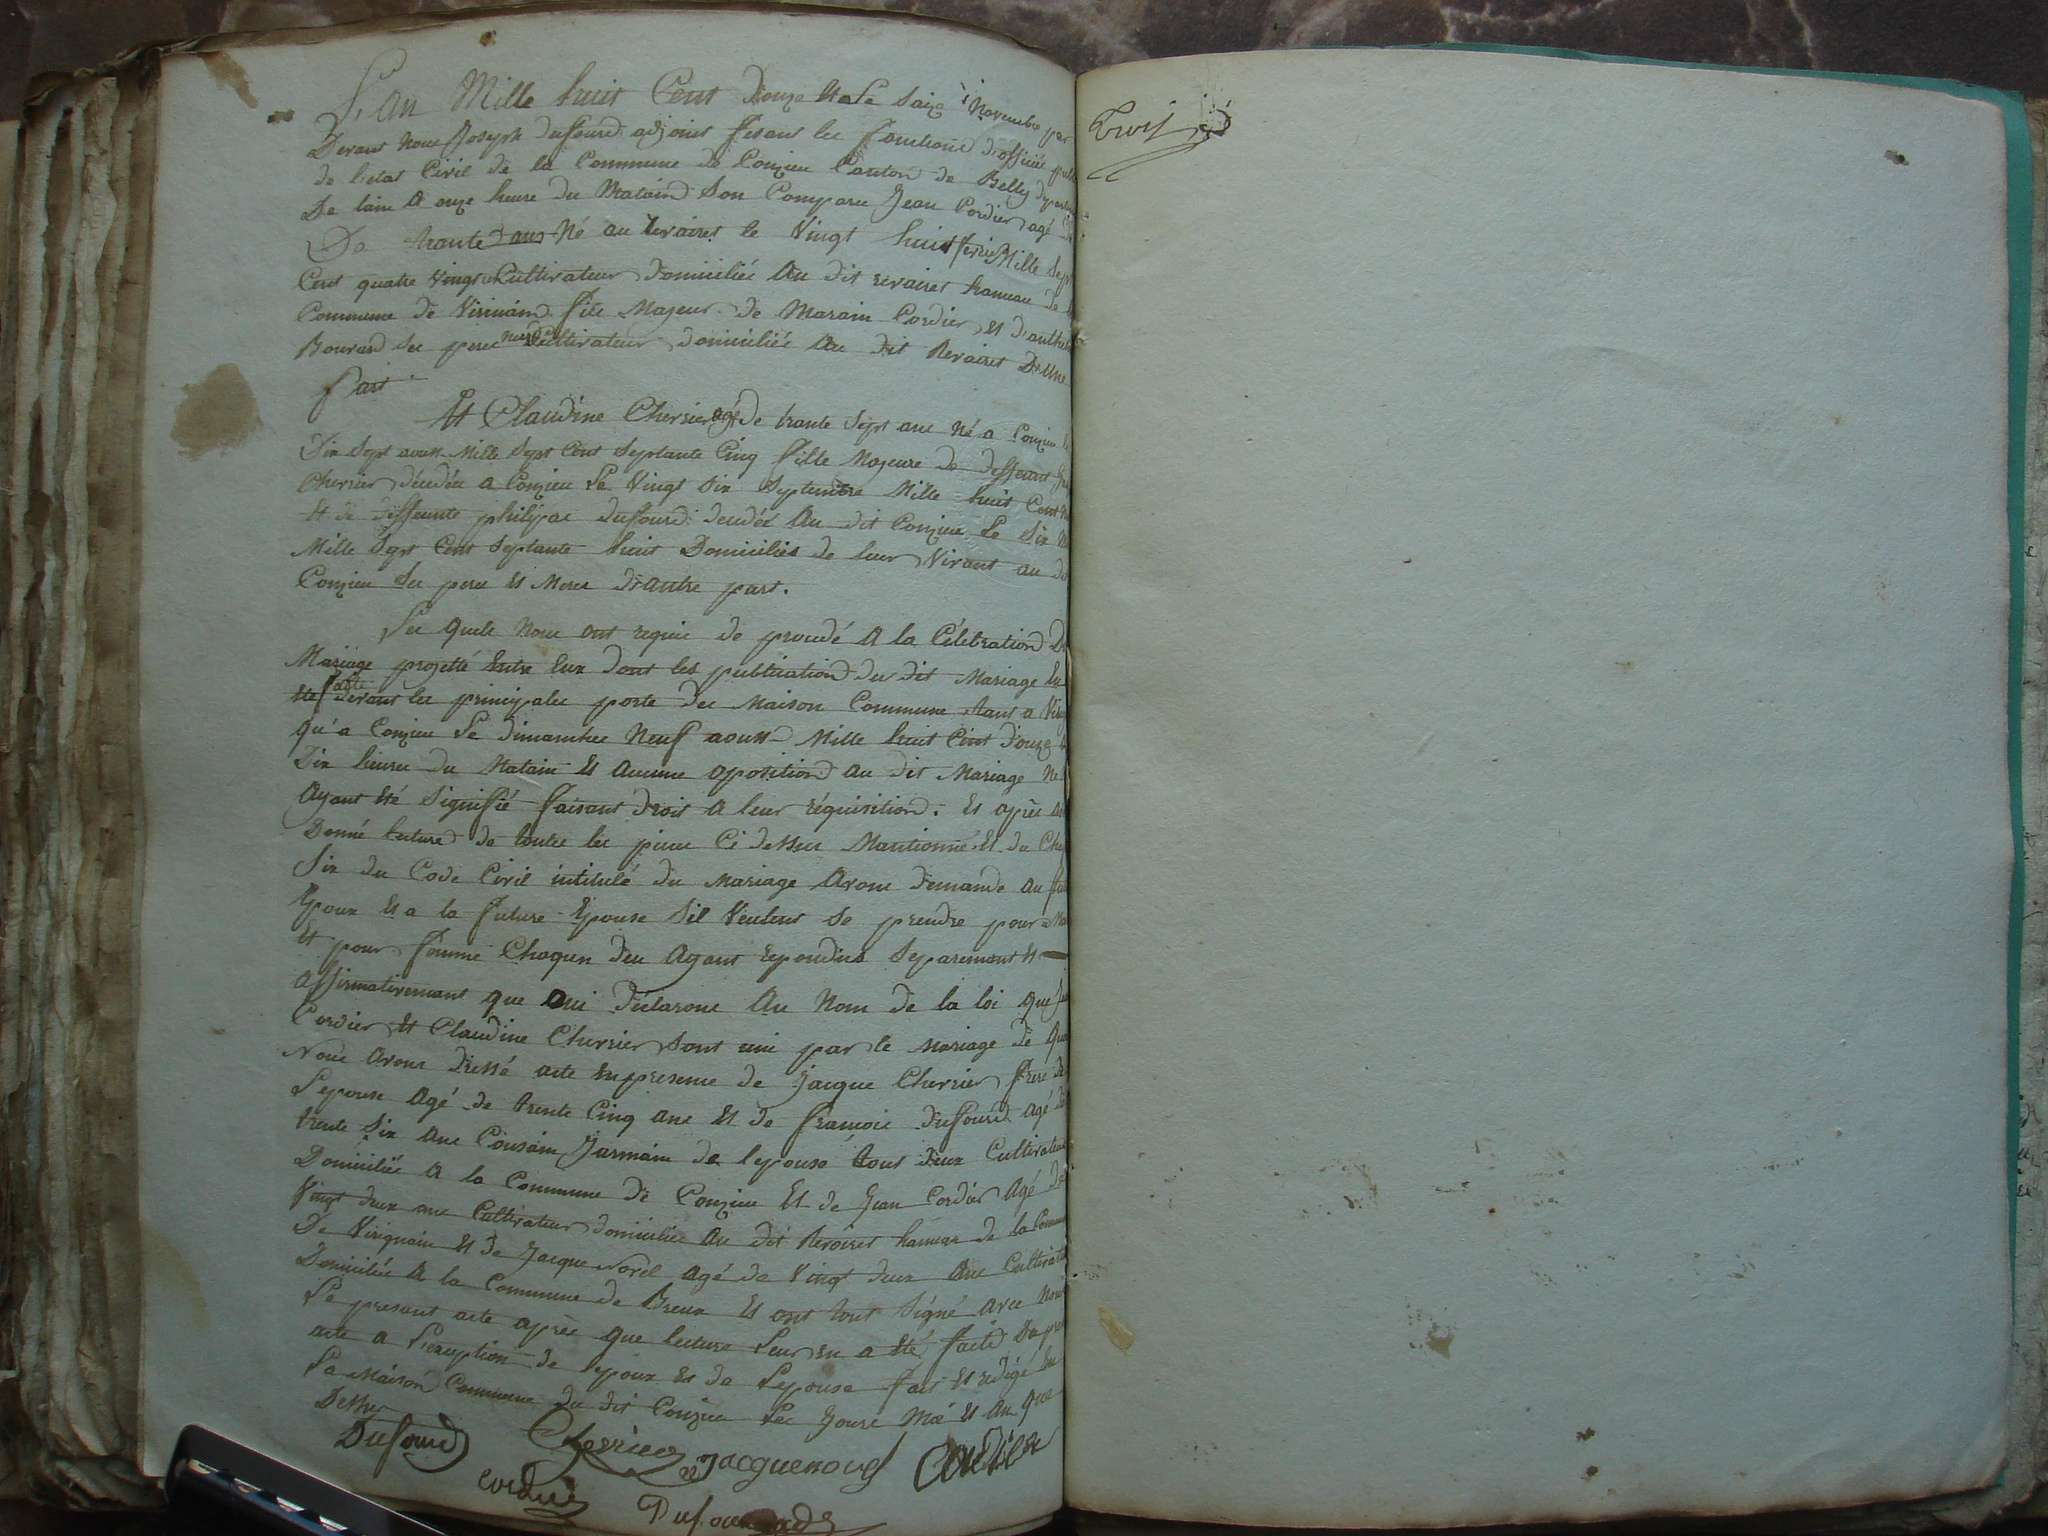 L'an Mille huit Cent Douze Et Le Saize Novembre par
Devant Nous Joseph duffourd adjoint fesant les fonctions d'officié
de l'etat Civil de la Commune de Conzieu Canton de Belley
De lain a onze heure du Matain Son Comparu Jean Cordier agé
De trante deux Né au revoiret le Vingt huit Mille Sept
Cent quatre Vingt Cultivateur domicilié Au dit revoiret hameau de
Commune de Virignind fils Majeur de Marain Cordier et d'anthel
Bourard Ses pere Cultivateur domicilié Au dit Revoiret D'Une
Part
Et Claudine Chersier agé de trante Sept ans Né a Conzieu
Dix Sept aoust Mille Sept Cent Septante Cinq fille Majeure de deffeunt
Chersier décédée a Conzieu Le Vingt Six Septembre Mille huit Cent
Et de deffeunte philipae duffourd decedée Au dit Conzieu Le Six
Mille Sept Cent Septante huit Domicilies de leur Vivant au dit
Conzieu Ses pere et Mere D'autre part.
Les quels Nous ont requis de procedé a la Célébration Du
Mariage projetté Entre Eux dont les publication du dit Mariage
Eté faite devant les principales porte des Maison Commune tant a
qu'a Conzieu Le dimanche Neuf aoust Mille huit Cent douze
Dix heures du Matain Et Aucune oposition au dit Mariage Ne
Ayant Eté Signiffié faisant droit a leur réquisition. Et après
Donné lecture de toutes les piece Ci dessus Mantionné Et du
Six du Code Civil intitulé du Mariage Avons demandé au
Epoux Et a la future Epouse Sil Veulent se prendre pour
Et pour femme Chaqun d'eu Ayant repondus Separement Et
Affirmativemant que Oui déclarons Au Nom de la loi que
Cordier Et Claudine Chersier Sont uni par le Mariage de Quoi
Nous Avons dressé acte En presence de Jacque Chersier frere de
Lepouse Agé de trente Cinq ans Et de françois duffourd Agé
trente Six Ans Cousain Jarmain de lepouse tous deux Cultivateur
Domicilié A la Commune de Conzieu Et de Jean Cordier Agé de
Vingt deux ans Cultivateur domicilié Au dit Revoiret hameau de la Commune
De Virignain Et de Jacque Novel agé de Vingt deux Ans Cultivateur
Domicilié A la Commune de Brens Et ont tout Signé avec Nous
Le presant acte après que lecture Leur en a Eté faite
acte a Lexception de lepoux Et de Lepouse fait Et redigé
La Maison Commune du dit Conzieu Les Jours Moi Et An Que
Dessus
Dufourd Cherrier Jacquenovel Cordier
Cordier Dufourd
Trois